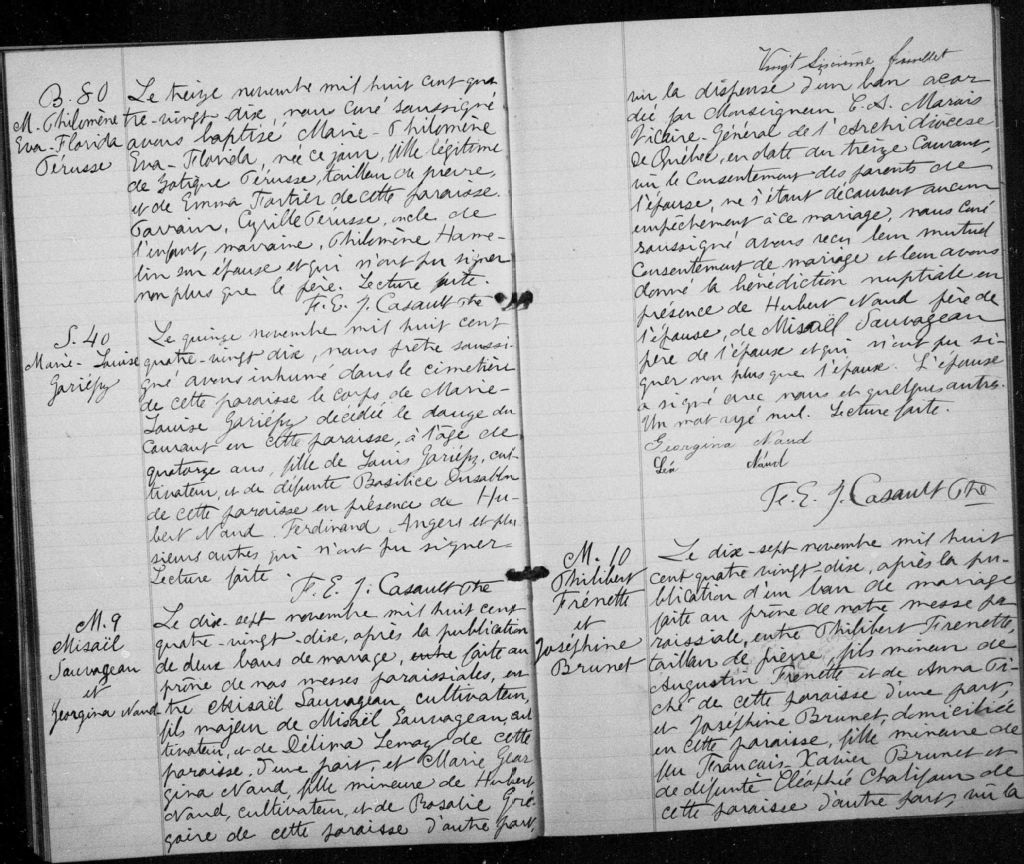 B. 80
M. Philomène
Eva-Florida
Térusse
Le treize novembre mil huit cent qua
tre-vingt dix, nous curé soussigné
avons baptisé Marie-Philomène
Eva-Florida, née ce jour, fille légitime
de Zotique Térusse, tailleur de pierre,
et de Emma Tortier de cette paroisse.
Parrain, Cyrille Térusse, oncle de
l'enfant, marraine, Philomène Hame-
lin son épouse et qui n'ont pu signer
non plus que le père. Lecture faite.
F. E. J. Casault Ptre
S. 40
Marie-Louise
Gariépy
Le quinze novembre mil huit cent
quatre-vingt dix, nous prêtre soussi
gné avons inhumé dans le cimetière
de cette paroisse le corps de Marie-
Louise Gariépy décédée le douze du
courant en cette paroisse, à l'âge de
quatorze ans, fille de Louis Gariépy, cul-
tivateur, et de défunte Basilice
de cette paroisse en présence de Hu-
bert Naud. Ferdinand Angers et plu
sieurs autres qui n'ont pu signer-
Lecture faite.
F. E. J. Casault Ptre
M. 9
Misaël
Sauvageau
et
Georgina Naud
Le dix-sept novembre mil huit cent
quatre-vingt-dix, après la publication
de deux bans de mariage, entre faite au
prône de nos messes paroissiales, en
tre Misaël Sauvageau, cultivateur,
fils majeur de Misaël Sauvageau, cul
tivateur, et de Délima Lemay de cette
paroisse, d'une part, et Marie Geor
gina Naud, fille mineure de Hubert
Naud, cultivateur, et de Rosalie Gré-
goire de cette paroisse d'autre part,
Vingt Sixième feuillet
vu la dispense d'un ban accor
dée par Monseigneur E. A. Marois
Vicaire-Général de l'Archidiocèse
de Québec, en date du treize courant,
vu le consentement des parents de
l'épouse, ne s'étant découvert aucun
empêchement à ce mariage, nous curé
soussigné avons reçu leur mutuel
consentement de mariage et leur avons
donné la bénédiction nuptiale en
présence de Hubert Naud père de
l'épouse, de Misaël Sauvageau
père de l'épouse et qui n'ont pu si-
gner non plus que l'époux. L'épouse
a signé avec nous et quelques autres.
Un mot rayé nul. Lecture faite.
Georgina Naud
Léa Naud
F. E. J. Casault Ptre
M. 10
Philibert
Frénette
et
Joséphine
Brunet
Le dix-sept novembre mil huit
cent quatre vingt-dix, après la pu-
blication d'un ban de mariage
faite au prône de notre messe pa
roissiale, entre Philibert Frenette,
tailleur de pierre, fils mineur de
Augustin Frenette et de Anna Pi-
ché de cette paroisse d'une part,
et Joséphine Brunet, domiciliée
en cette paroisse, fille mineure de
feu François-Xavier Brunet et
de défunte Cléophée Chalifour de
cette paroisse d'autre part, vu la